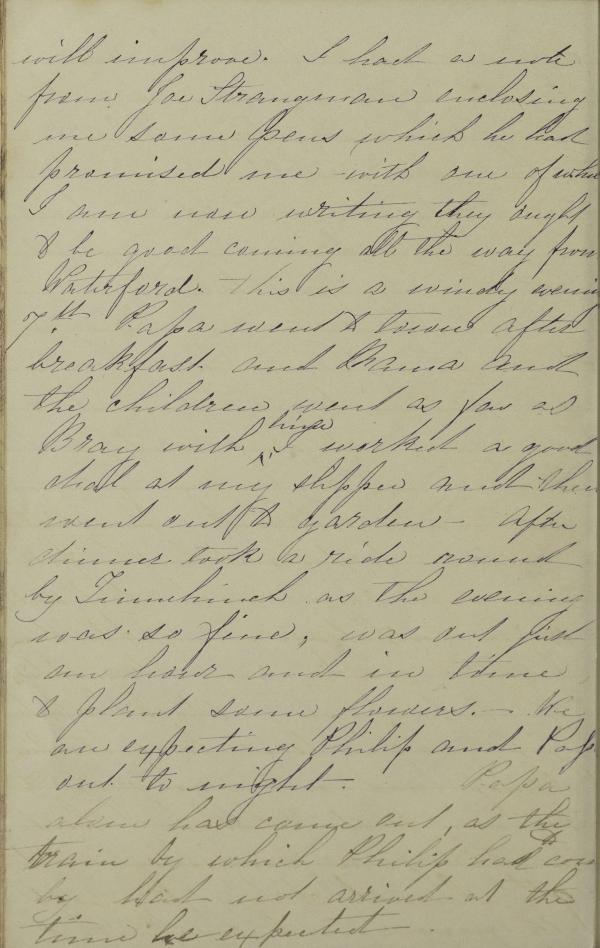 will improve. I had a note
from Joe Strangman enclosing
me some pens which he had
promised me - with one of whi
I am now writing they ought
to be good coming all the way from
Waterford. This is a windy evening
7th Papa went to town after
breakfast and Mama and
the children went as far as
Bray with him I worked a good
deal at my slipper and then
went out to garden - After
dinner took a ride round
by Tinnehinch as the evening
was so fine, was out just
an hour and in time
to plant some flowers. - We
are expecting Philip and Pap
out to night. Papa
alone has come out, as the
train by which Philip had to come
by had not arrived at the
time he expected.